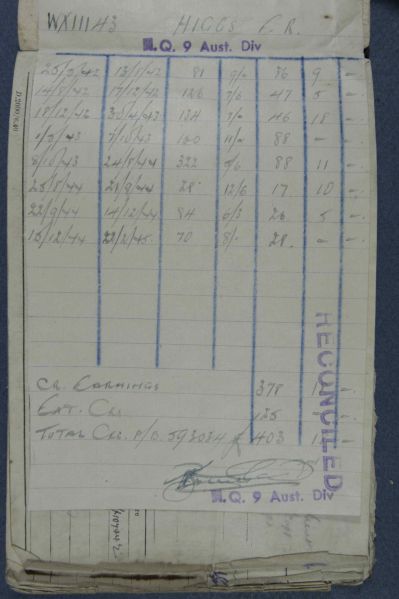 WX11143 HIGGS F.R.
H.Q. 9 Aust. Div
25/2/42 13/5/42 81 9/- 36 9 -
14/5/42 17/12/42 126 7/6 47 5 -
18/12/42 30/4/43 134 7/- 46 18 -
1/5/43 7/10/43 160 11/- 88 - -
8/10/43 24/8/44 322 5/6 88 11 -
25/8/44 21/9/44 28 12/6 17 10 -
22/9/44 14/12/44 84 6/3 26 5 -
15/12/44 22/2/45 70 8/- 28 - -
RECONCILED
CR EARNINGS 378
EXT. CR. 25
TOTAL CRS. P/B. 593034 £ 403
H.Q. 9 Aust. Div